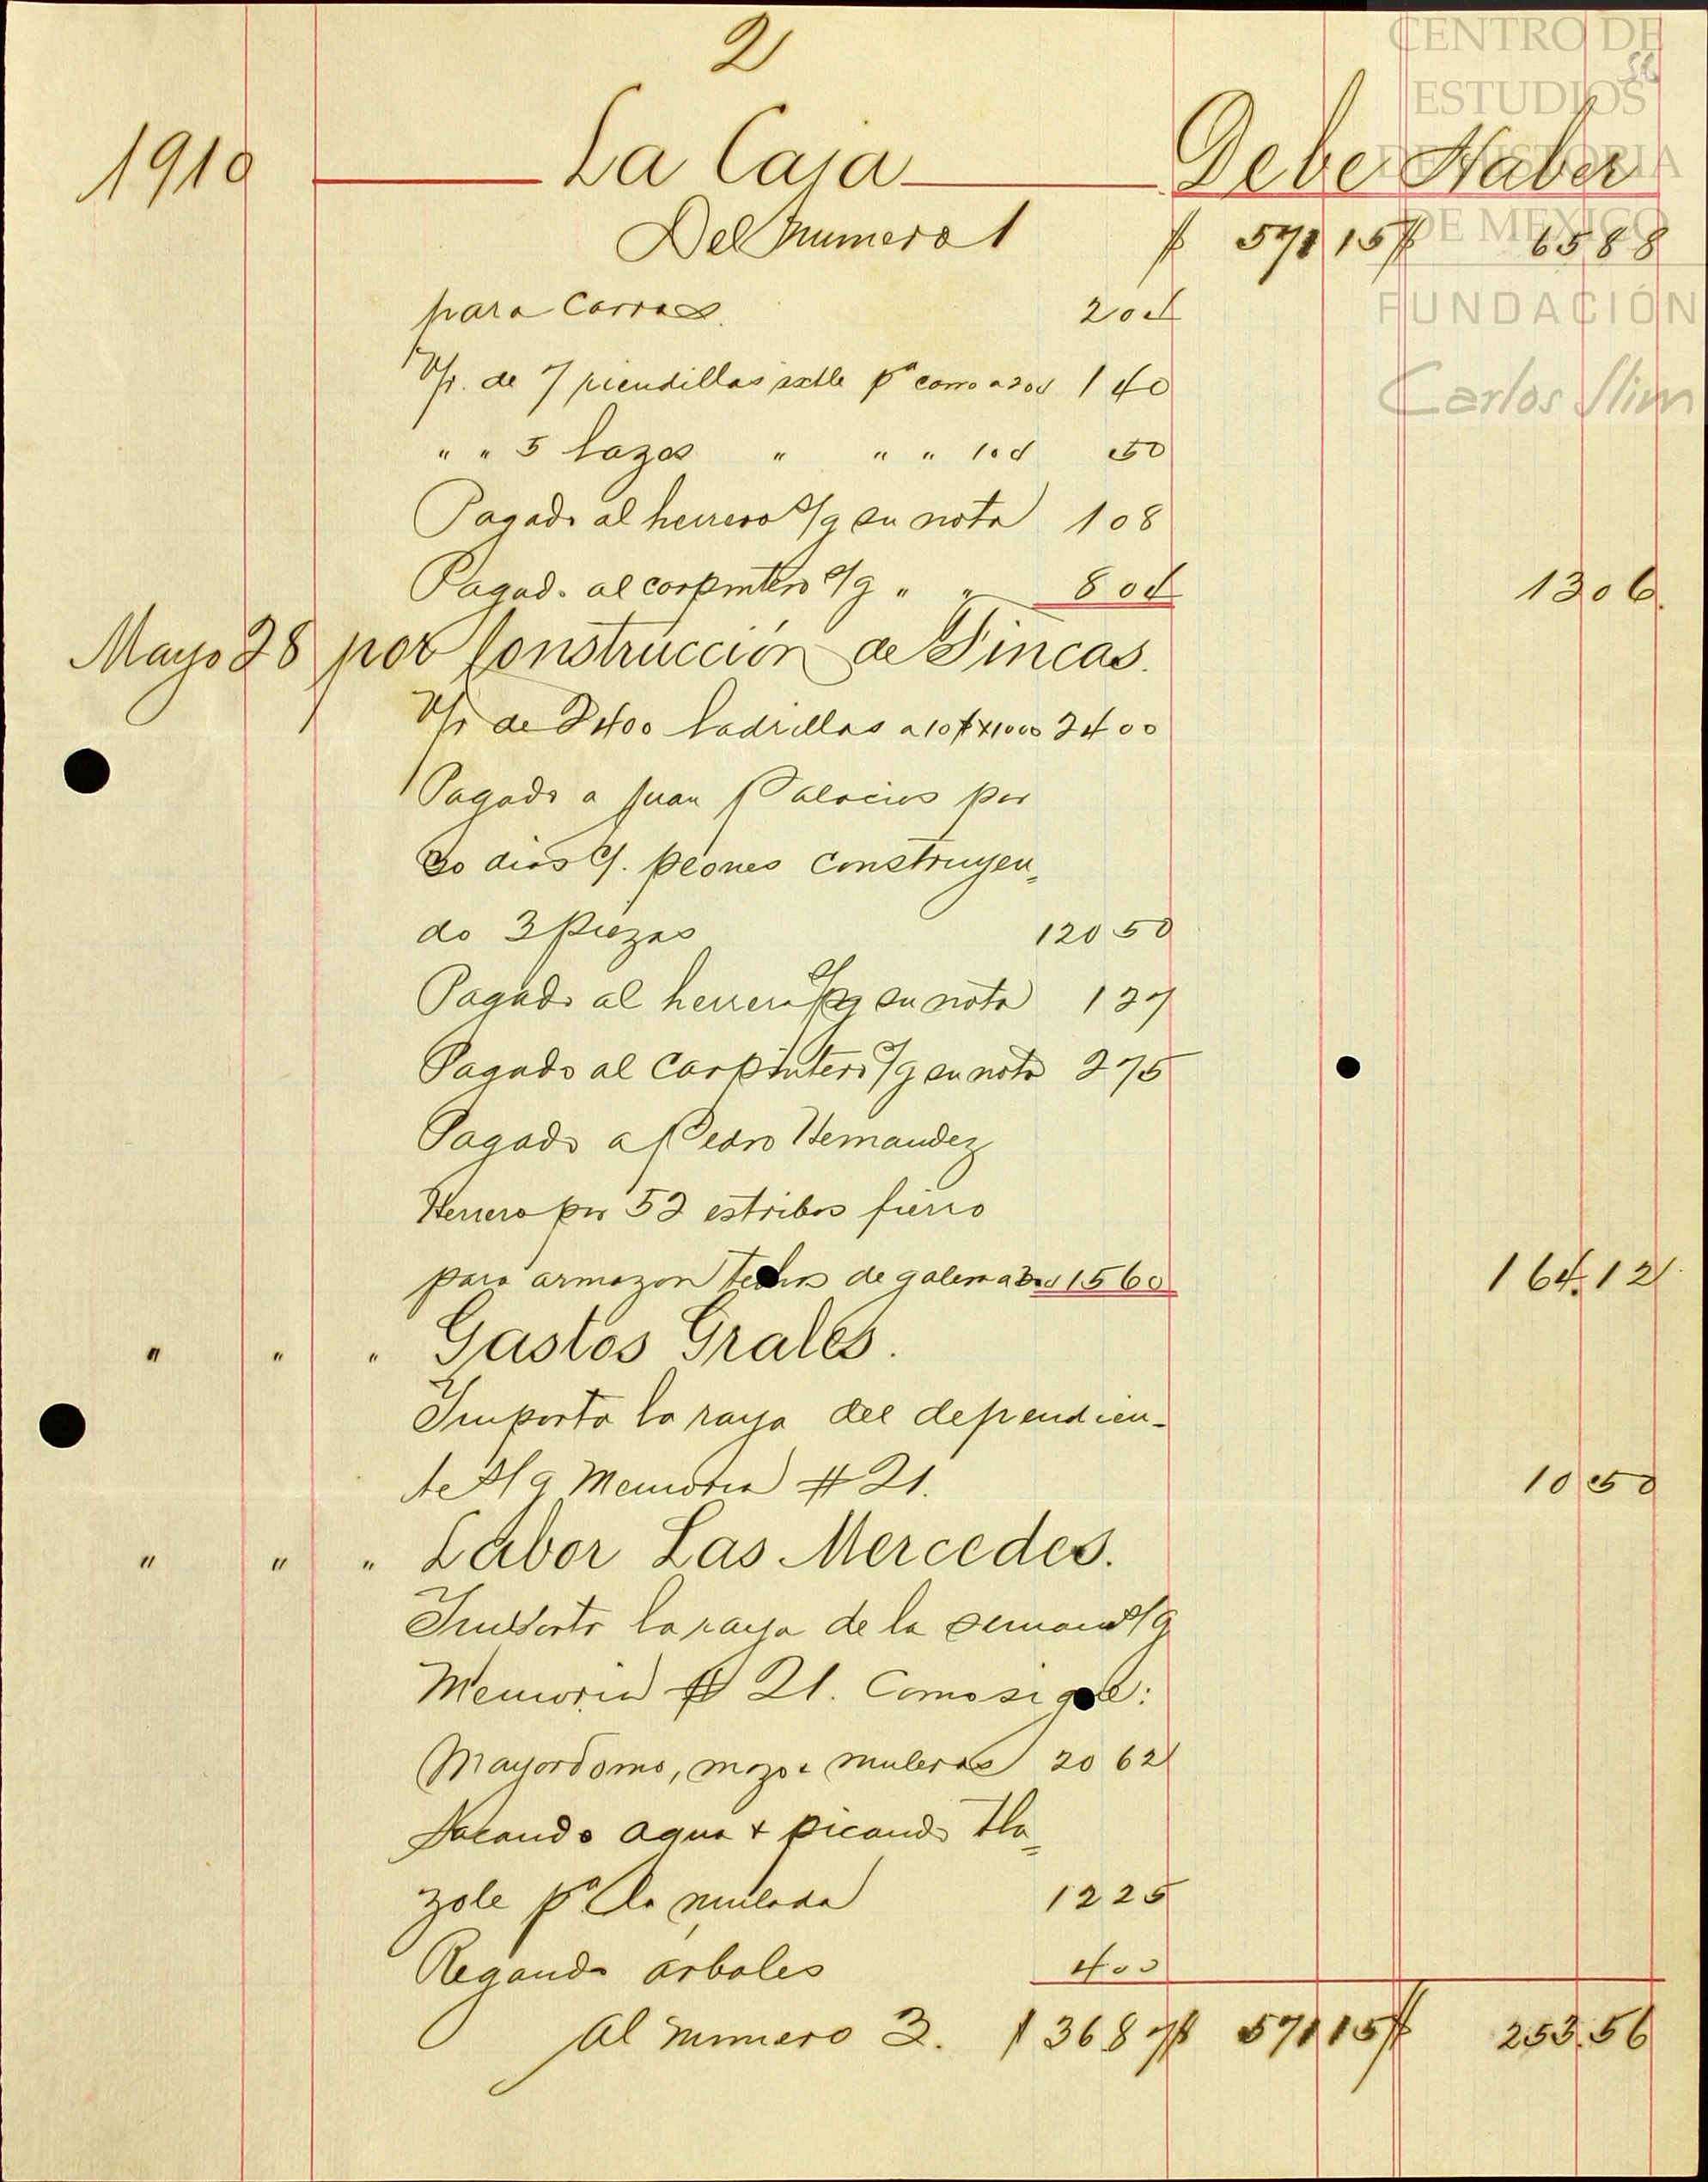 2
CENTRO DE
ESTUDIOS
DE HISTORIA
DE MEXICO
FUNDACIÓN
Carlos Slim
1910 La Caja Debe Haber
Del numero 1 $ 571 15 $ 65 88
para Carros. 20 ¢
V/r. de 7 piendillas ixtle pª carro a 20 ¢ 1 40
" " 5 lazos " " " 10 ¢ 50
Pagado al herrero s/g su nota 1 08
Pagado al carpintero s/g " " 80 ¢ 13 06.
Mayo 28 por Construcción de Fincas.
V/r de 2400 ladrillos a 10 $ x 1000 24 00
Pagado a Juan Palacios por
dias c/. peones construyen=
do 3 piezas 120 50
Pagado al herrero s/g su nota 1 27
Pagado al Carpintero s/g su nota 2 75
Pagado a Pedro Hernandez
Herrero por 52 estribos fierro
para armazon techos de galera a 30 ¢ 15 60 164.12
" " " Gastos Grales.
Importa la raya del dependien-
te s/g Memoria # 21. 10 50
" " " Labor Las Mercedes.
Importa la raya de la semana s/g
Memoria # 21. Como sigue:
Mayordomo, mozo muleros 20 62
Sacando agua + picando tla=
zole pª la mulada 12 25
Regando arboles 4 00
Al numero 3. $ 36 87 $ 571 15 $ 253.56